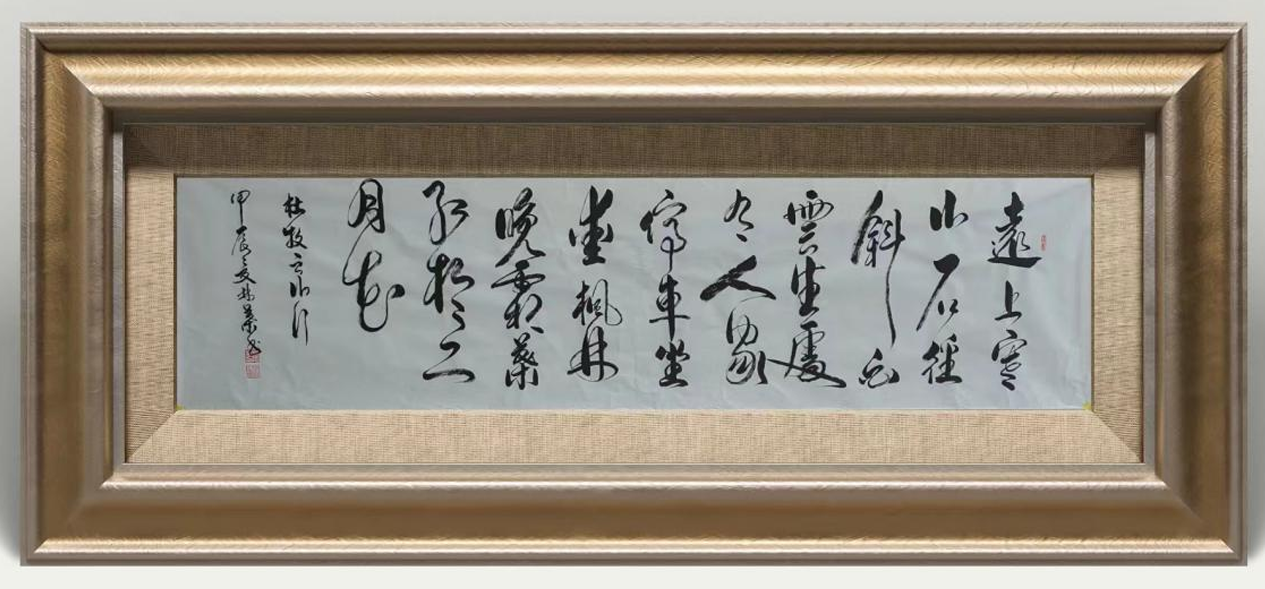 遠上寒
山石徑
斜白
雲生處
有人家
停車坐
愛楓林
晚霜葉
紅於二
月花
杜牧之山行
甲辰夏